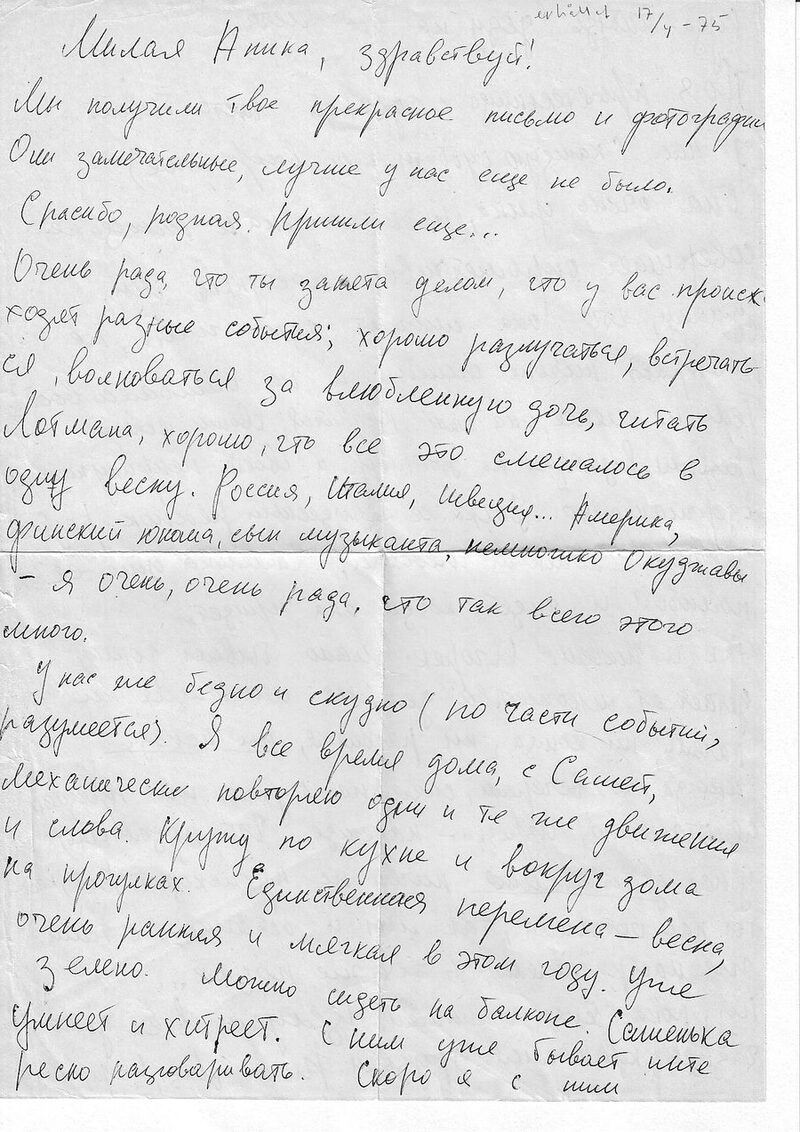 erhållet 17/4 - 75
Милая Аника, здравствуй!
Мы получили твое прекрасное письмо и фотографии
Они замечательные, лучше у нас еще не было.
Спасибо, родная. Пришли еще...
Очень рада, что ты занята делом, что у вас происх
ходят разные события; хорошо разлучаться, встречать
ся, волноваться за влюбленную дочь, читать
Лотмана, хорошо, что все это смешалось в
одну весну. Россия, Италия, Швеция... Америка,
финский юноша, сын музыканта, немножко Окуджавы
– я очень, очень рада, что так всего этого
много.
У нас же бедно и скудно (по части событий,
разумеется). Я все время дома, с Сашей,
механически повторяю одни и те же движения
и слова. Кружу по кухне и вокруг дома
на прогулках. Единственная перемена – весна,
очень ранняя и мягкая в этом году. Уже
зелено. Можно сидеть на балконе. Сашенька
умнеет и хитреет. С ним уже бывает инте
ресно разговаривать. Скоро я с ним